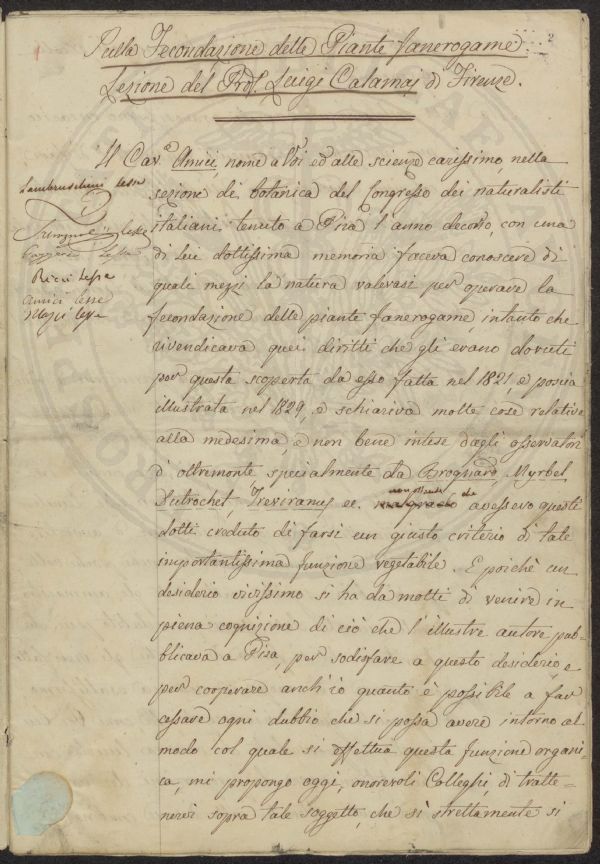 2
Sulla Fecondazione delle Piante fanerogame.
Lezione del Prof. Luigi Calamaj di Firenze.
Il Cav.e Amici, nome a Voi ed alle scienze carissimo, nella
sezione di botanica del Congresso dei naturalisti
italiani tenuto a Pisa l'anno decorso, con una
di Lui dottissima memoria faceva conoscere di
quali mezzi la natura valevasi per operare la
fecondazione delle piante fanerogame, intanto che
rivendicava quei diritti che gli erano dovuti
per questa scoperta da esso fatta nel 1821 e poscia
illustrata nel 1829, e schiariva molte cose relative
alla medesima, e non bene intese dagli osservatori
d'oltremonte specialmente da Brognard, Myrbel
Dutrochet, Treviranus ec. nonostante che avessero questi
dotti creduto di farsi un giusto criterio di tale
importantissima funzione vegetabile. E poichè un
desiderio vivissimo si ha da molti di venire in
piena cognizione di ciò che l'illustre autore pub-
blicava a Pisa, per sodisfare a questo desiderio, e
per cooperare anch'io quanto è possibile a far
cessare ogni dubbio che si possa avere intorno al
modo col quale si effettua questa funzione organi-
ca, mi propongo oggi, onorevoli Colleghi, di tratte-
nervi sopra tale soggetto, che sì strettamente si
Lambruschini lesse
lesse
Gazzeri Lesse
Ricci Lesse
Amici lesse
lesse